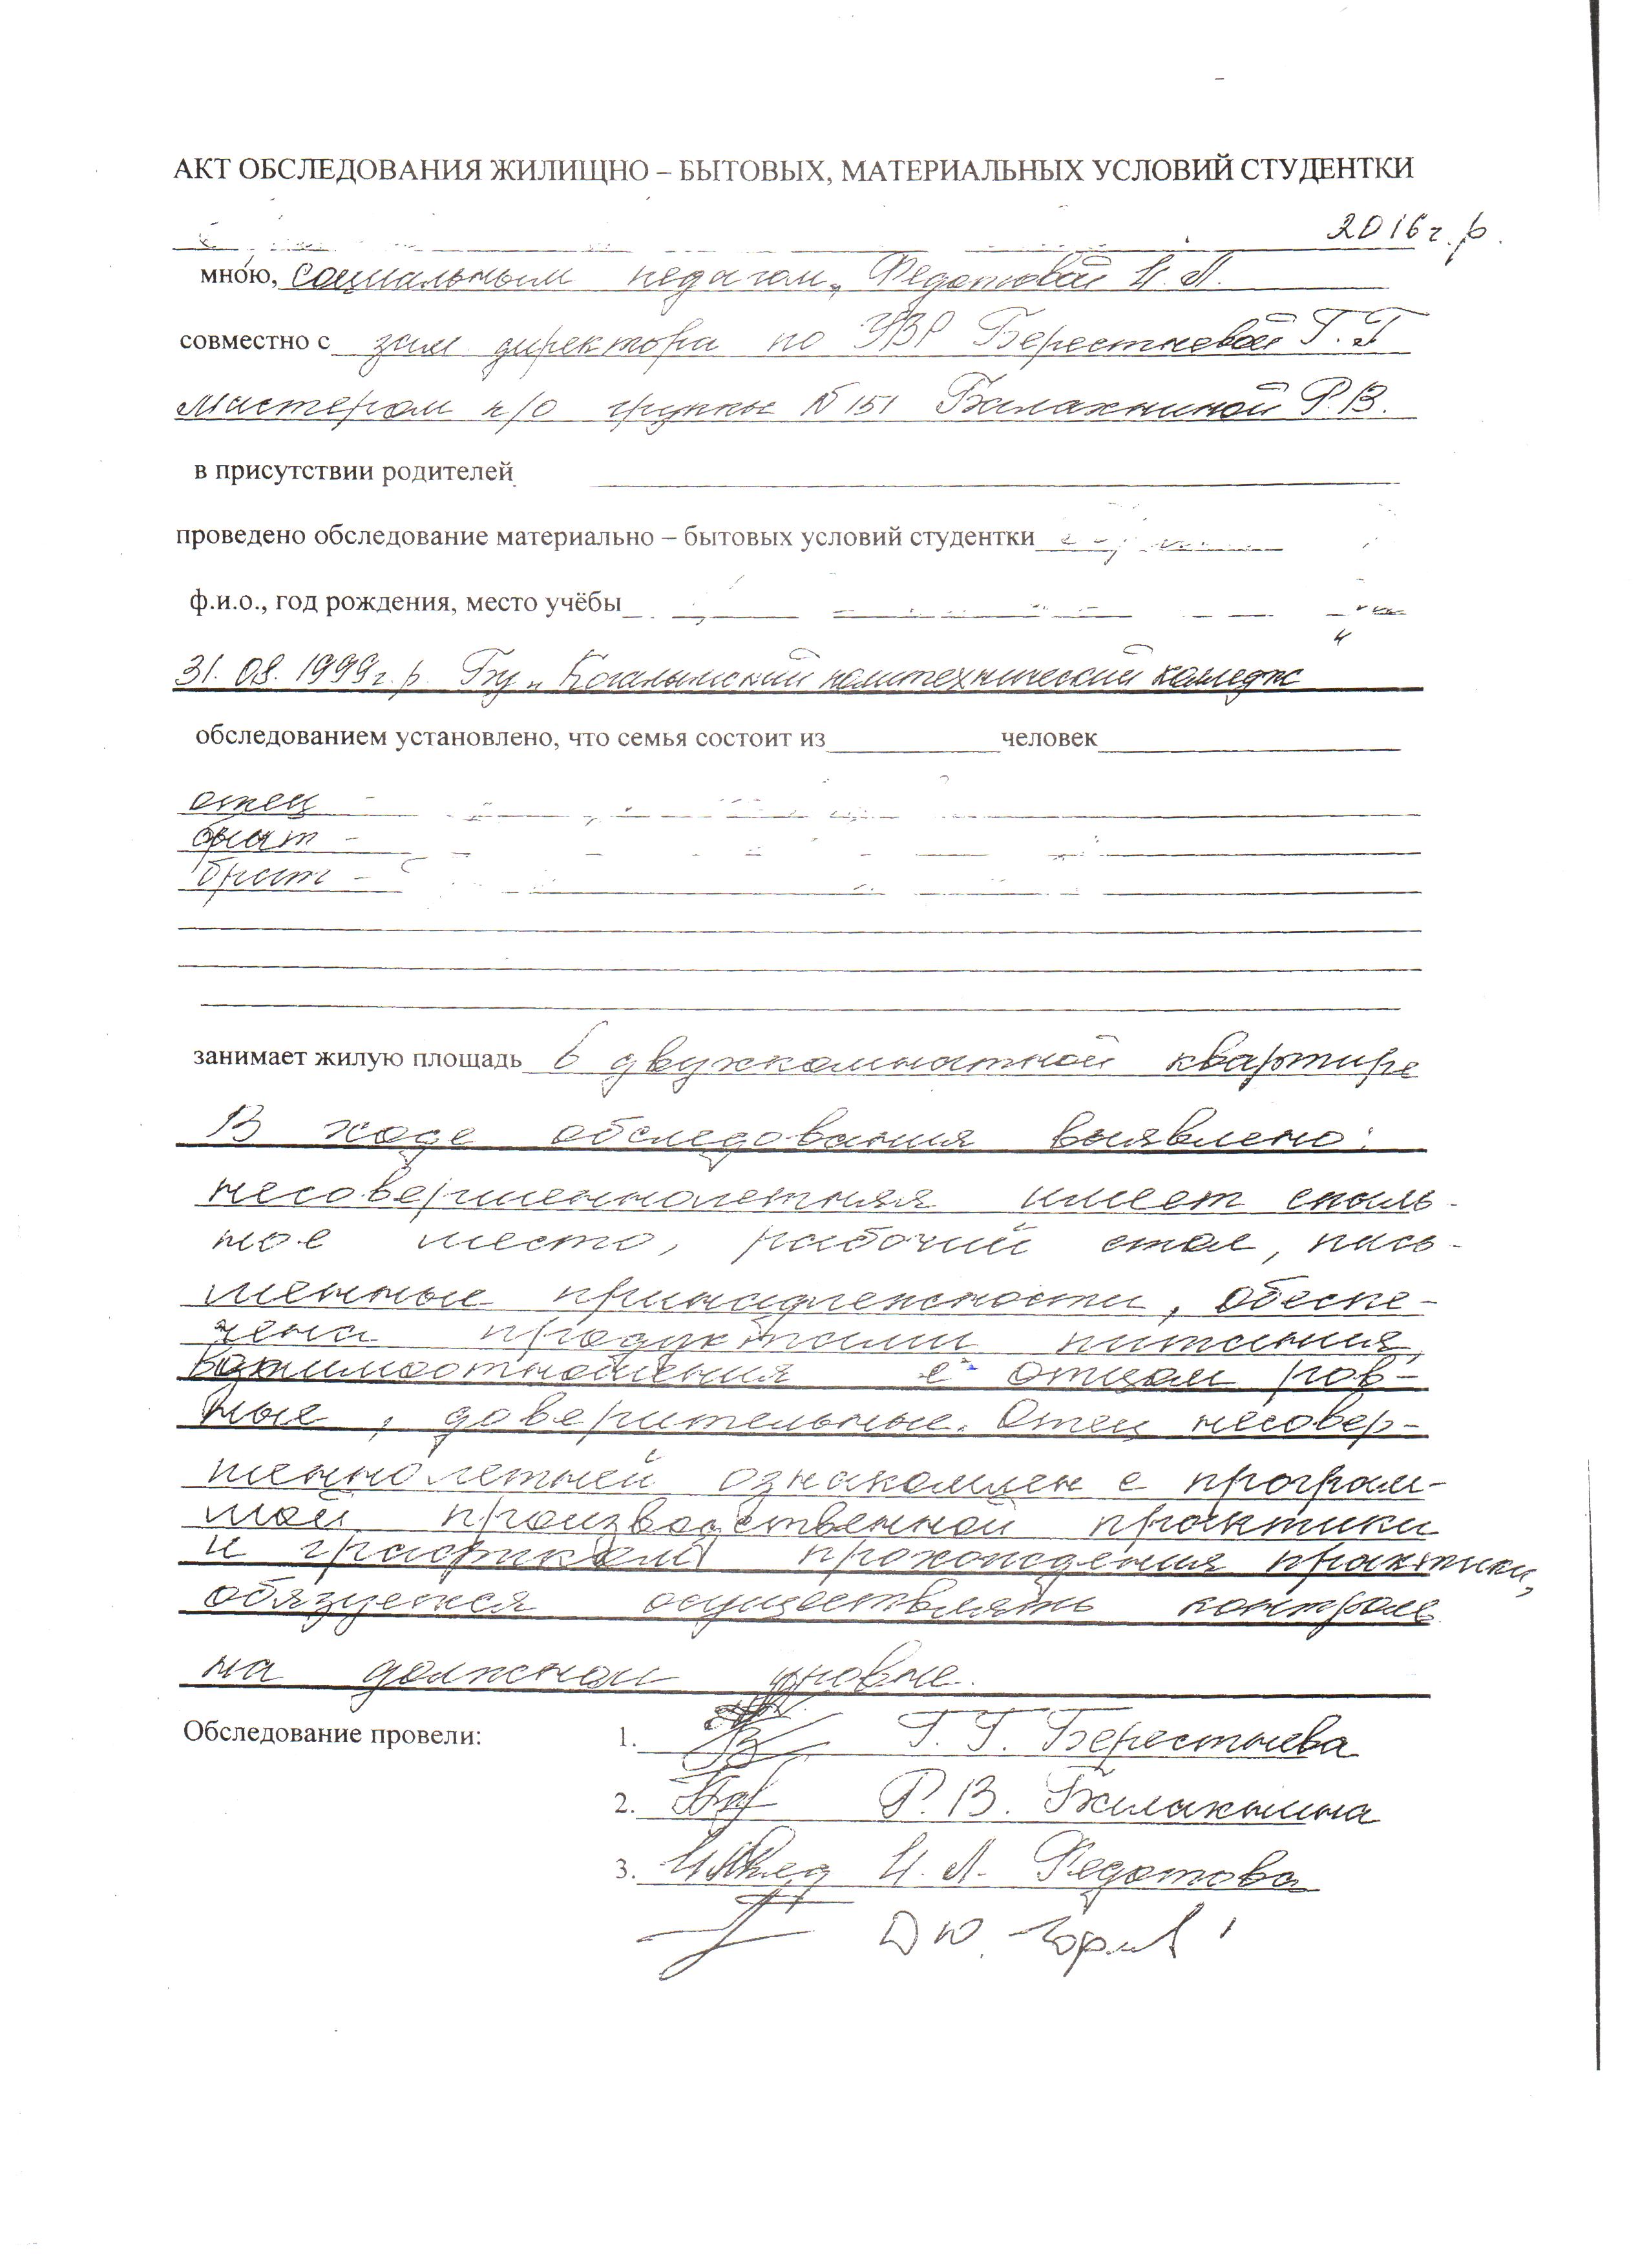 АКТ ОБСЛЕДОВАНИЯ ЖИЛИЩНО – БЫТОВЫХ, МАТЕРИАЛЬНЫХ УСЛОВИЙ СТУДЕНТКИ
2016 г. р.
мною, социальным педагом, Федотовой И. Л.
совместно с зам директора по УВР Берестневой Г. Г
мастером п/о группы № 151 Балахниной Р. В.
в присутствии родителей
проведено обследование материально – бытовых условий студентки
ф.и.о., год рождения, место учёбы
31. 08. 1999 г. р. Бу „ Когалымский политехнический колледж
обследованием установлено, что семья состоит из человек
отец -
брат -
брат -
занимает жилую площадь в двухкомнатной квартире
В ходе обследования выявлено:
несовершеннолетняя имеет спаль-
ное место, рабочий стол, пись-
менные принадлежности, обеспе-
чена продуктами питания,
взаимоотношения с отцом ров-
ные, доверительные. Отец несовер-
шеннолетней ознакомлен с програм-
мой производственной практики
и графиком прохождения практики,
обязуется осуществлять контроль
на должном уровне.
Обследование провели:
1. Г. Г. Берестнева
2. Р. В. Балахнина
3. И. Л. Федотова